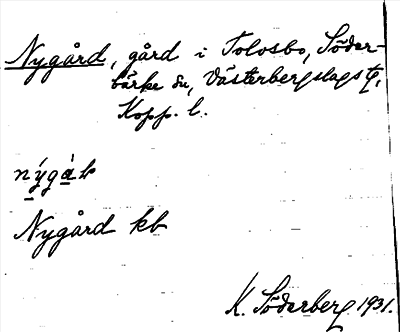 Nygård, gård i Tolosbo, Söder-
bärke sn, Västerbergslags tg,
Kopp. l.
Nygård kb
K. Söderberg 1931.